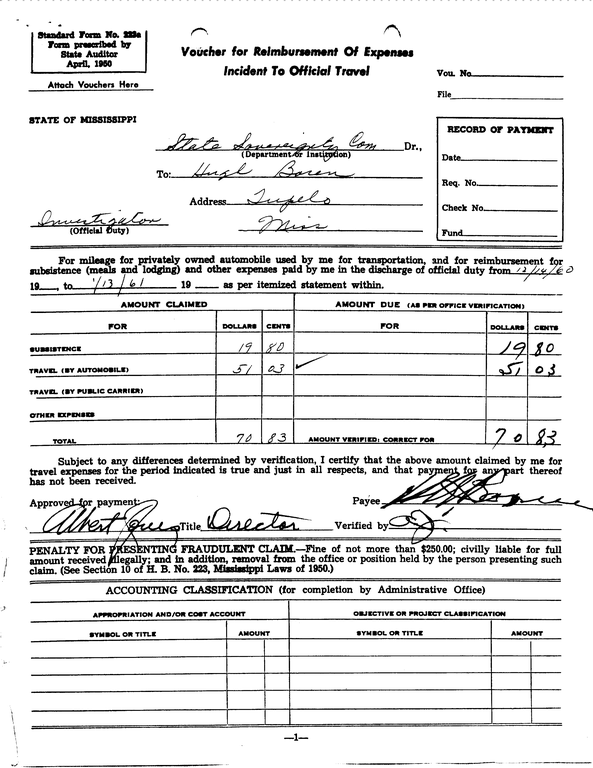 Standard Form No. 223a
Form prescribed by
State Auditor
April, 1950
Attach Vouchers Here
Voucher for Reimbursement Of Expenses
Incident To Official Travel
Vou. No.
File
STATE OF MISSISSIPPI
State Sovereignty Com Dr.,
(Department or Institution)
To: Hugh Boren
Address Tupelo
Miss
Investigator
(Official Duty)
RECORD OF PAYMENT
Date
Req. No.
Check No.
Fund
For mileage for privately owned automobile used by me for transportation, and for reimbursement for
subsistence (meals and lodging) and other expenses paid by me in the discharge of official duty from 12/14/60
19___, to 1/13/61 19 ___ as per itemized statement within.
AMOUNT CLAIMED AMOUNT DUE (AS PER OFFICE VERIFICATION)
FOR DOLLARS CENTS FOR DOLLARS CENTS
SUBSISTENCE 19 80 19 80
TRAVEL (BY AUTOMOBILE) 51 03 ✓ 51 03
TRAVEL (BY PUBLIC CARRIER)
OTHER EXPENSES
TOTAL 70 83 AMOUNT VERIFIED: CORRECT FOR 70 83
Subject to any differences determined by verification, I certify that the above amount claimed by me for
travel expenses for the period indicated is true and just in all respects, and that payment for any part thereof
has not been received.
Approved for payment: Payee
Albert Jones Title Director Verified by
PENALTY FOR PRESENTING FRAUDULENT CLAIM.—Fine of not more than $250.00; civilly liable for full
amount received illegally; and in addition, removal from the office or position held by the person presenting such
claim. (See Section 10 of H. B. No. 223, Mississippi Laws of 1950.)
ACCOUNTING CLASSIFICATION (for completion by Administrative Office)
APPROPRIATION AND/OR COST ACCOUNT OBJECTIVE OR PROJECT CLASSIFICATION
SYMBOL OR TITLE AMOUNT SYMBOL OR TITLE AMOUNT
—1—